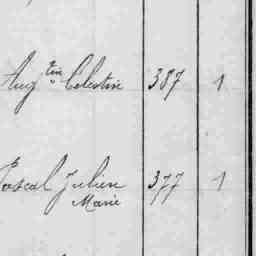 Aug^tin Célestin 387 1
Pascal Julien 377 1
Marie